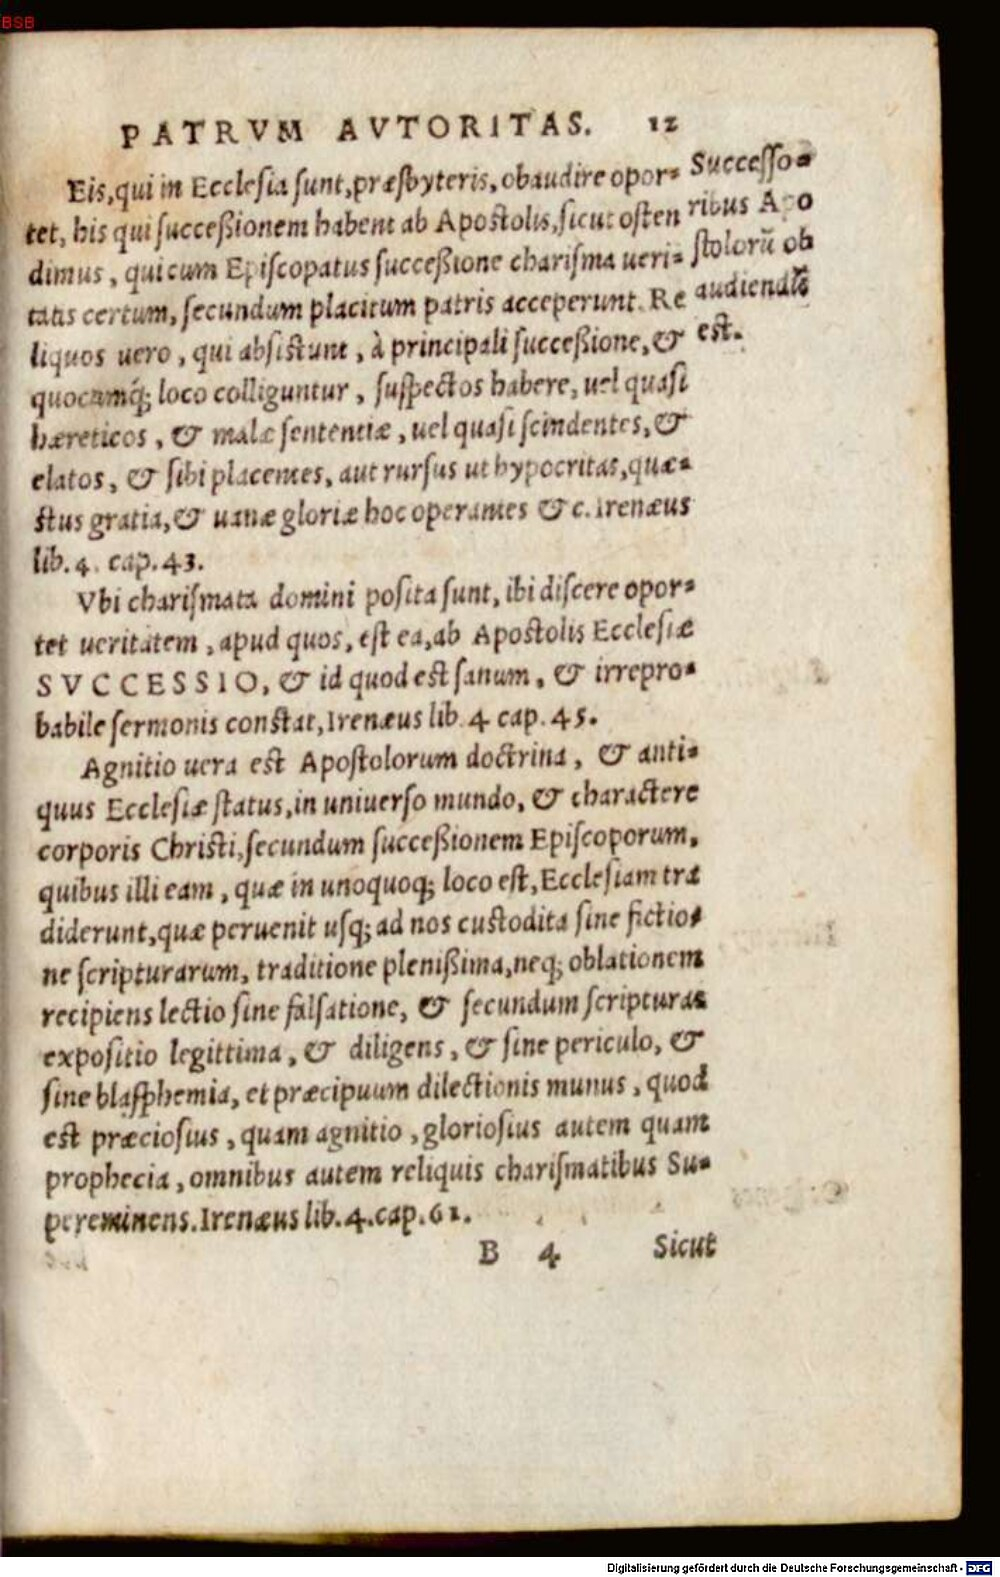 BSB
PATRVM AVTORITAS. 12
Eis, qui in Ecclesia sunt, præsbyteris, obaudire opor-
tet, his qui succeßionem habent ab Apostolis, sicut osten
dimus, qui cum Episcopatus succeßione charisma ueri-
tatis certum, secundum placitum patris acceperunt. Re
liquos uero, qui absistunt, à principali succeßione, &
quocumq́; loco colliguntur, suspectos habere, uel quasi
hæreticos, & malæ sententiæ, uel quasi scindentes, &
elatos, & sibi placentes, aut rursus ut hypocritas, quæ-
stus gratia, & uanæ gloriæ hoc operantes & c. Irenæus
lib. 4. cap. 43.
Successo-
ribus Apo
stolorū ob
audiendū
est.
Vbi charismata domini posita sunt, ibi discere opor-
tet ueritatem, apud quos, est ea, ab Apostolis Ecclesiæ
SVCCESSIO, & id quod est sanum, & irrepro-
babile sermonis constat, Irenæus lib. 4 cap. 45.
Agnitio uera est Apostolorum doctrina, & anti-
quus Ecclesiæ status, in uniuerso mundo, & charactere
corporis Christi, secundum succeßionem Episcoporum,
quibus illi eam, quæ in unoquoq; loco est, Ecclesiam tra
diderunt, quæ peruenit usq; ad nos custodita sine fictio-
ne scripturarum, traditione plenißima, neq; oblationem
recipiens lectio sine falsatione, & secundum scripturas
expositio legittima, & diligens, & sine periculo, &
sine blasphemia, et præcipuum dilectionis munus, quod
est præciosius, quam agnitio, gloriosius autem quam
prophecia, omnibus autem reliquis charismatibus Su-
pereminens. Irenæus lib. 4. cap. 61.
B 4 Sicut
Digitalisierung gefördert durch die Deutsche Forschungsgemeinschaft - DFG